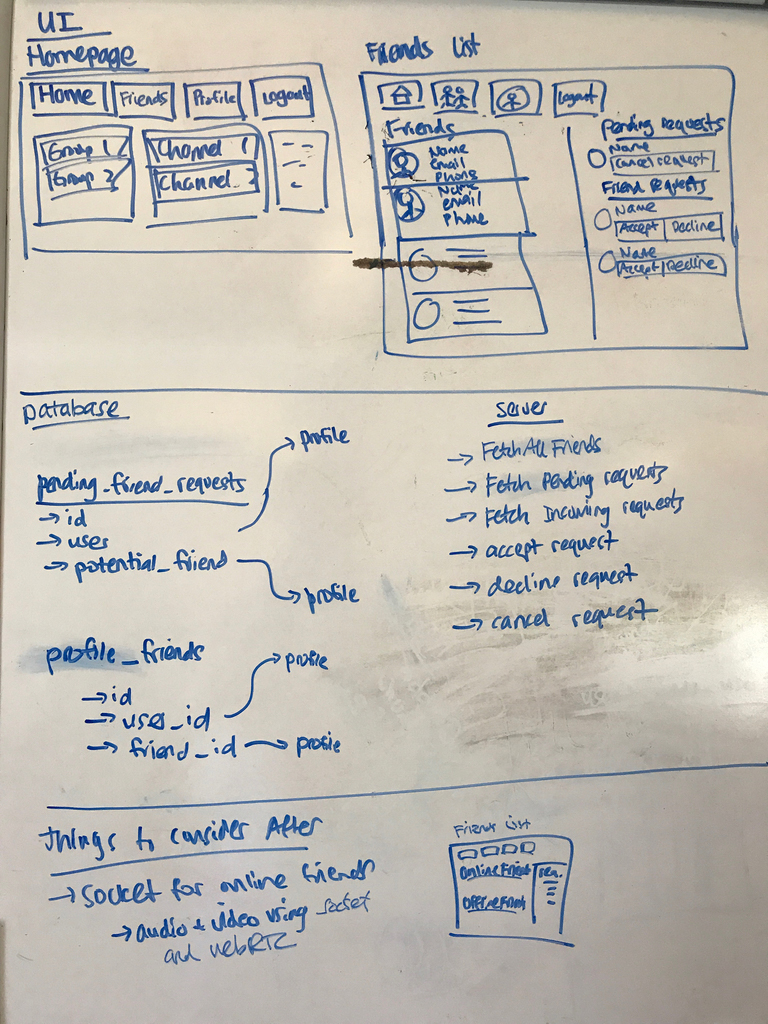 UI
Homepage
Home Friends Profile Logout
Group 1 Channel 1
Group 2 Channel 2
Friends List
Logout
Friends
Name
email
phone
Name
email
phone
Pending Requests
Name
Cancel request
Friend Requests
Name
Accept Decline
Name
Accept Decline
Database
pending_friend_requests
→ id
→ user → profile
→ potential_friend → profile
profile_friends
→ id
→ user_id → profile
→ friend_id → profile
Server
→ Fetch All Friends
→ Fetch Pending requests
→ Fetch Incoming requests
→ accept request
→ decline request
→ cancel request
Things to consider After
→ Socket for online friends
→ audio + video using socket
and webRTC
Friends List
Online Friends req.
Offline Friends